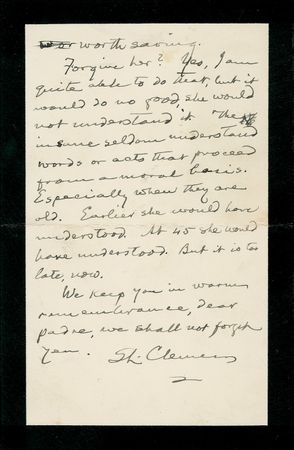 worth saving.
Forgive her? Yes, I am
quite able to do that, but it
would do no good, she would
not understand it. The
insane seldom understand
words or acts that proceed
from a moral basis.
Especially when they are
old. Earlier she would have
understood. At 45 she would
have understood. But it is too
late, now.
We keep you in warm
remembrance, dear
padre, we shall not forget
you.
SL. Clemens